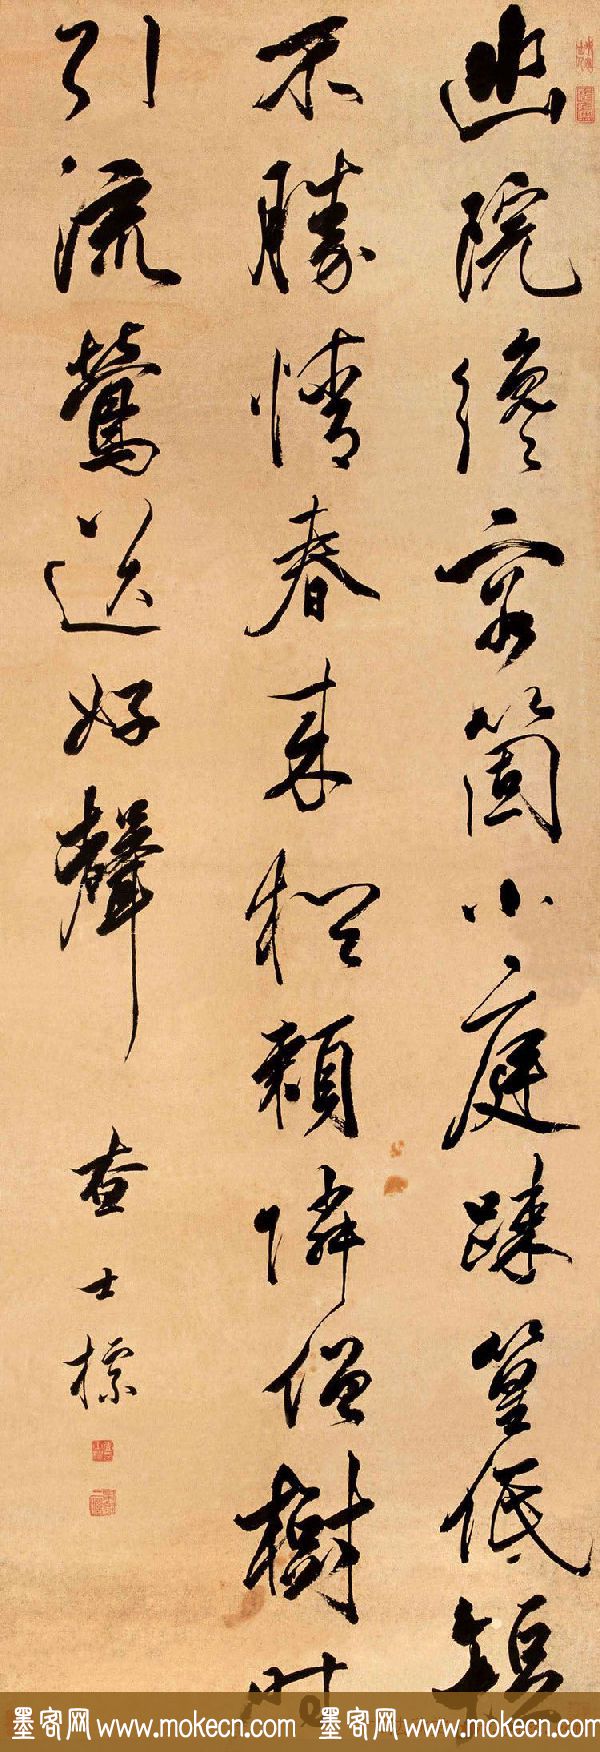 幽院纔容箇小庭踈篁低短
不勝情春來猶賴隣僧樹時
引流鶯送好聲
查士標
墨客网 www.mokecn.com 墨客网 www.mokecn.com